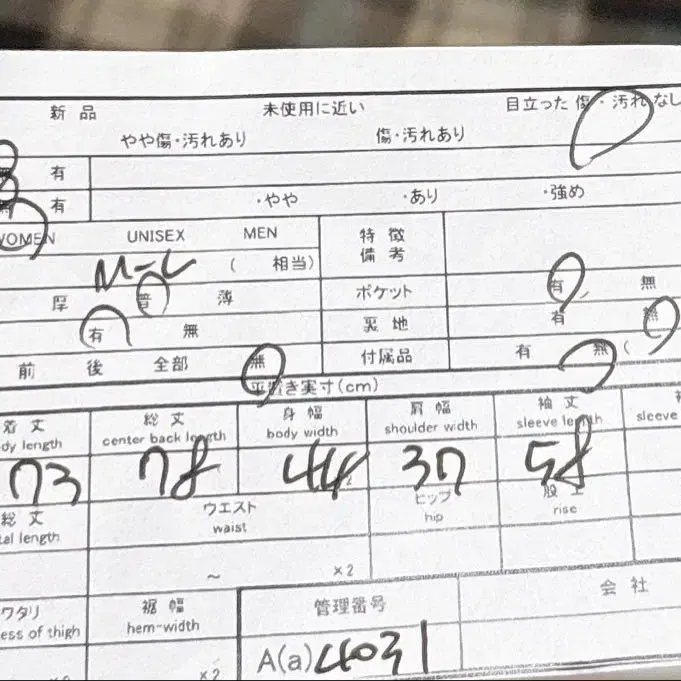 新品 未使用に近い 目立った傷・汚れなし
やや傷・汚れあり 傷・汚れあり
有
有 ・やや ・あり ・強め
WOMEN UNISEX MEN 特徴
備考
M-L ( 相当)
厚 普 薄 ポケット 有 無
有 無 裏地 有 無
前 後 全部 無 付属品 有 無 (
平置き実寸(cm)
着丈 総丈 身幅 肩幅 袖丈
dy length center back length body width shoulder width sleeve length sleeve
73 78 44 37 58
総丈 ウエスト ヒップ 股上
al length waist hip rise
~ ×2
ワタリ 裾幅 管理番号 会社
ess of thigh hem-width
×2 A(a)4031